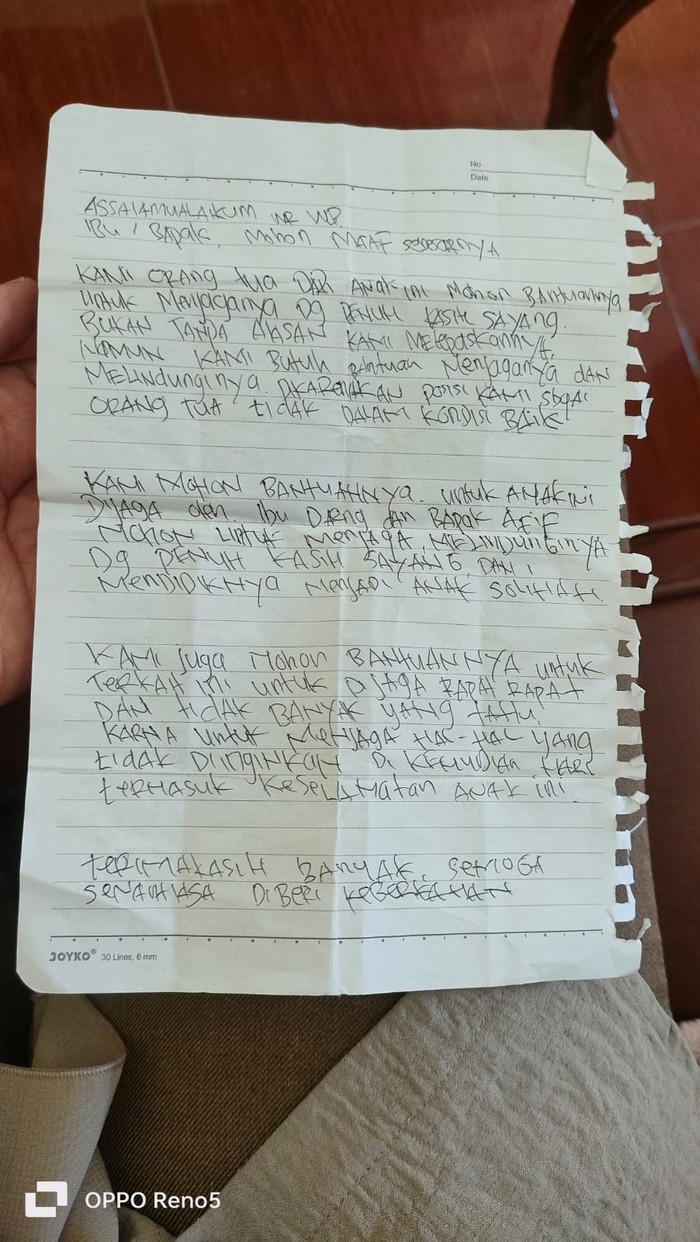 No
Date
ASSALAMUALAIKUM WR WB.
IBU / BAPAK, MOHON MAAF sebesarnya
KAMI ORANG tua DARI ANAK INI MOHON BANtuannya
untuk Menjaganya Dg PENUH KASIH SAYANG.
BUKAN TANDA ALASAN KAMI Melepaskannya,
NAMUN KAMI Butuh Bantuan Menjaganya DAN
MELINDUNGInya. DIKARENAKAN posisi KAMI sbgai
ORANG TUA tidak DALAM KONDISI BAIK
KAMI MOHON BANTUANNya. untuk ANAK INI
DIJAGA oleh Ibu DAeng dan BAPAK
MOHON UNTUK menjaga, MELINDUNGINYA
Dg PENUH KASIH SAYANG, DAN
MENDIDIKNya MenjADI ANAK SOLIHAH.
KAMI juga MOHON BANTUANNYA untuk
TERKAIT INI untuk DIJAGA RAPAT RAPAT
DAN tidak BANYAK YANG TAHU,
KARNA untuk MENJAGA HAL-HAL YANG
tidak DIINGINKAN DI KEMUDIAN HARI
termasuk KeSELAMatan ANAK INI.
tERIMAKASIH BANYAK. SEMOGA
SENANTIASA DIBERI KEBERKAHAN
JOYKO® 30 Lines, 6 mm
OPPO Reno5